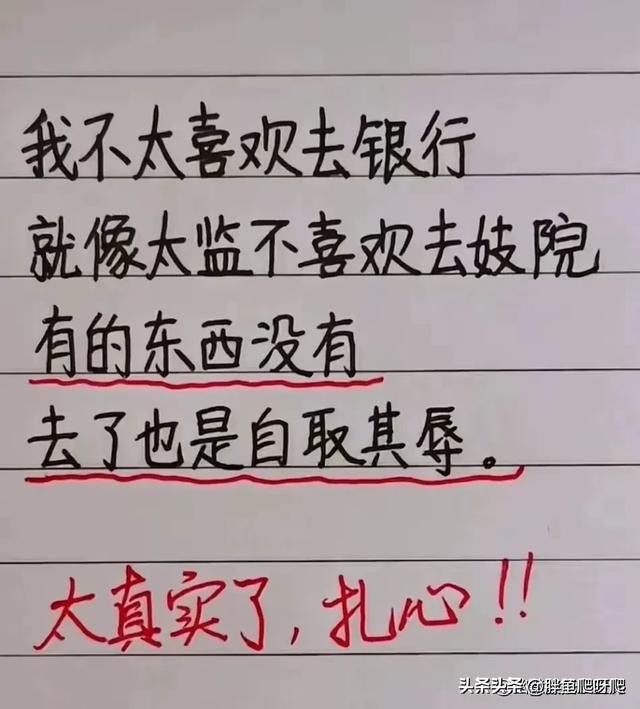 我不太喜欢去银行
就像太监不喜欢去妓院
有的东西没有
去了也是自取其辱。
太真实了,扎心!!
头条头条 @胖鱼爬呀爬